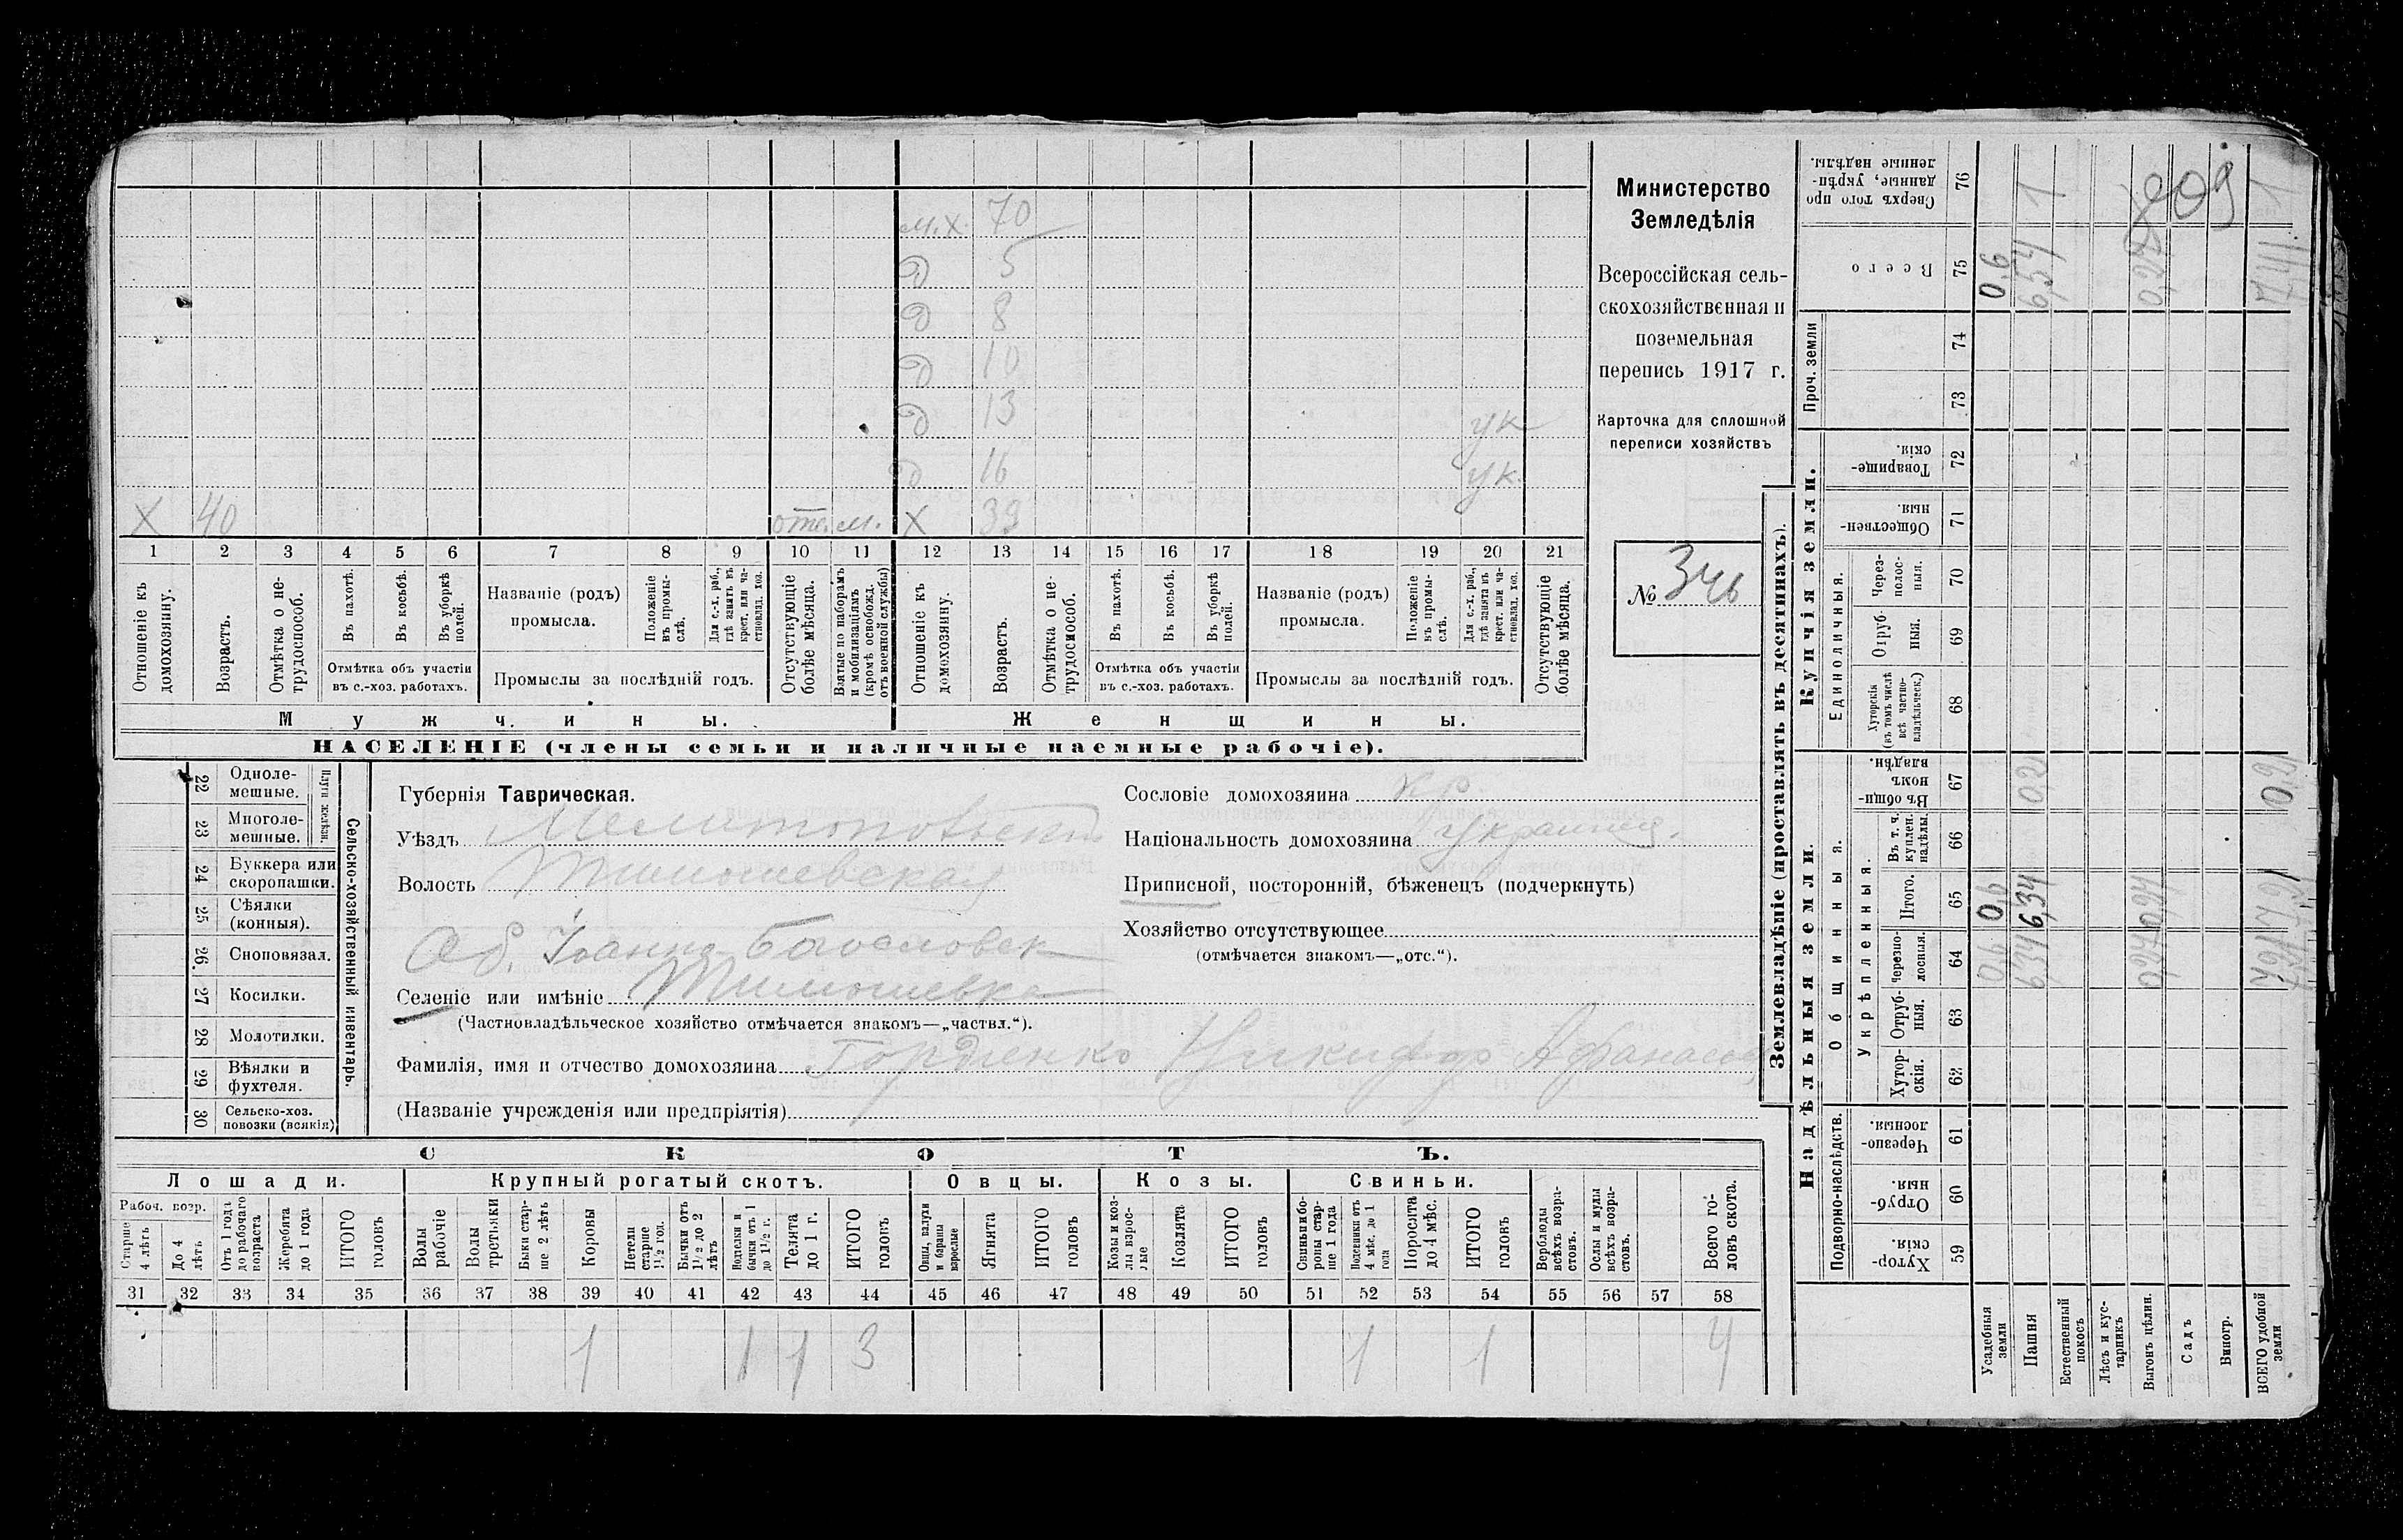 м.х. 70
д 5
д 8
д 10
д 13 ук
д 16 ук.
х 40 отс. м. х 39
1 2 3 4 5 6 7 8 9 10 11 12 13 14 15 16 17 18 19 20 21
Отношеніе къ домохозяину.
Возрастъ.
Отмѣтка о не-трудоспособ.
Въ пахотѣ.
Въ косьбѣ.
Въ уборкѣ полей.
Отмѣтка объ участіи
въ с.-хоз. работахъ.
Названіе (родъ)
промысла.
Положеніе въ промы-слѣ.
Для с.-х. раб., гдѣ занятъ въ крест. или ча-стновлад. хоз.
Промыслы за послѣдній годъ.
Отсутствующіе болѣе мѣсяца.
Взятые по наборамъ и мобилизаціямъ (кромѣ освобожд. отъ военной службы)
Отношеніе къ домохозяину.
Возрастъ.
Отмѣтка о не-трудоспособ.
Въ пахотѣ.
Въ косьбѣ.
Въ уборкѣ полей.
Отмѣтка объ участіи
въ с.-хоз. работахъ.
Названіе (родъ)
промысла.
Положеніе въ промы-слѣ.
Для с.-х. раб., гдѣ занята въ крест. или ча-стновлад. хоз.
Промыслы за послѣдній годъ.
Отсутствующіе болѣе мѣсяца.
Мужчины. Женщины.
НАСЕЛЕНІЕ (члены семьи и наличные наемные рабочіе).
Министерство
Земледѣлія
Всероссійская сель-
скохозяйственная и
поземельная
перепись 1917 г.
Карточка для сплошной
переписи хозяйствъ
№ 346
22 Одноле-мешные.
23 Многоле-мешные.
Плуги желѣзн.
24 Буккера или скоропашки.
25 Сѣялки (конныя).
26. Сноповязал.
27 Косилки.
28 Молотилки.
29 Вѣялки и фухтеля.
30 Сельско-хоз. повозки (всякія)
Сельско-хозяйственный инвентарь.
Губернія Таврическая.
Уѣздъ Мелитопольскій
Волость Тимошевская
Об. Іоанно-Богословск
Селеніе или имѣніе Тимошевка
(Частновладѣльческое хозяйство отмѣчается знакомъ—„частвл.“).
Фамилія, имя и отчество домохозяина Гордіенко Никифор Афанасьев
(Названіе учрежденія или предпріятія)
Сословіе домохозяина кр.
Національность домохозяина украинец.
Приписной, посторонній, бѣженецъ (подчеркнуть)
Хозяйство отсутствующее
(отмѣчается знакомъ—„отс.“).
СКОТЪ.
Лошади. Крупный рогатый скотъ. Овцы. Козы. Свиньи.
Рабоч. возр.
Старше 4 лѣтъ
До 4 лѣтъ
Отъ 1 года до рабочаго возраста
Жеребята до 1 года
ИТОГО головъ
Волы рабочіе
Волы третьяки
Быки стар-ше 2 лѣтъ
Коровы
Нетели старше 1½ год.
Бычки отъ 1½ до 2 лѣтъ
Подтелки и бычки отъ 1 до 1½ г.
Телята до 1 г.
ИТОГО головъ
Овцы, валухи и бараны взрослые
Ягнята
ИТОГО головъ
Козы и коз-лы взрос-лые
Козлята
ИТОГО головъ
Свиньи бо-ровы стар-ше 1 года
Подсвинки отъ 4 мѣс. до 1 года
Поросята до 4 мѣс.
ИТОГО головъ
Верблюды всѣхъ возра-стовъ.
Ослы и мулы всѣхъ возра-стовъ.
Всего го-ловъ скота.
31 32 33 34 35 36 37 38 39 40 41 42 43 44 45 46 47 48 49 50 51 52 53 54 55 56 57 58
1 1 1 3 1 1 4
Землевладѣніе (проставлять въ десятинахъ).
Надѣльныя земли.
Купчія земли.
Проч. земли
Подворно-наслѣдств.
Общинныя.
Укрѣпленныя.
Единоличныя.
Хутор-скія. 59
Отруб-ныя. 60
Черезпо-лосныя. 61
Хутор-скія. 62
Отруб-ныя. 63
Черезпо-лосныя. 64
Итого. 65
Въ т. ч. куплен. надѣлы. 66
Въ общи-номъ владѣн. 67
Хуторскія (въ томъ числѣ всѣ частно-владѣльческ.) 68
Отруб-ныя. 69
Через-полос-ныя. 70
Обществен-ныя. 71
Товарище-скія. 72
73
74
Всего 75
Сверхъ того про-данные, укрѣп-ленные надѣлы. 76
Усадебныя земли 0,6 0,6 0,6
Пашня 6,34 6,34 0,2 6,54 1
Естественный покосъ
Лѣсъ и кус-тарникъ
Выгонъ цѣлин.
Садъ
Виногр.
ВСЕГО удобной земли